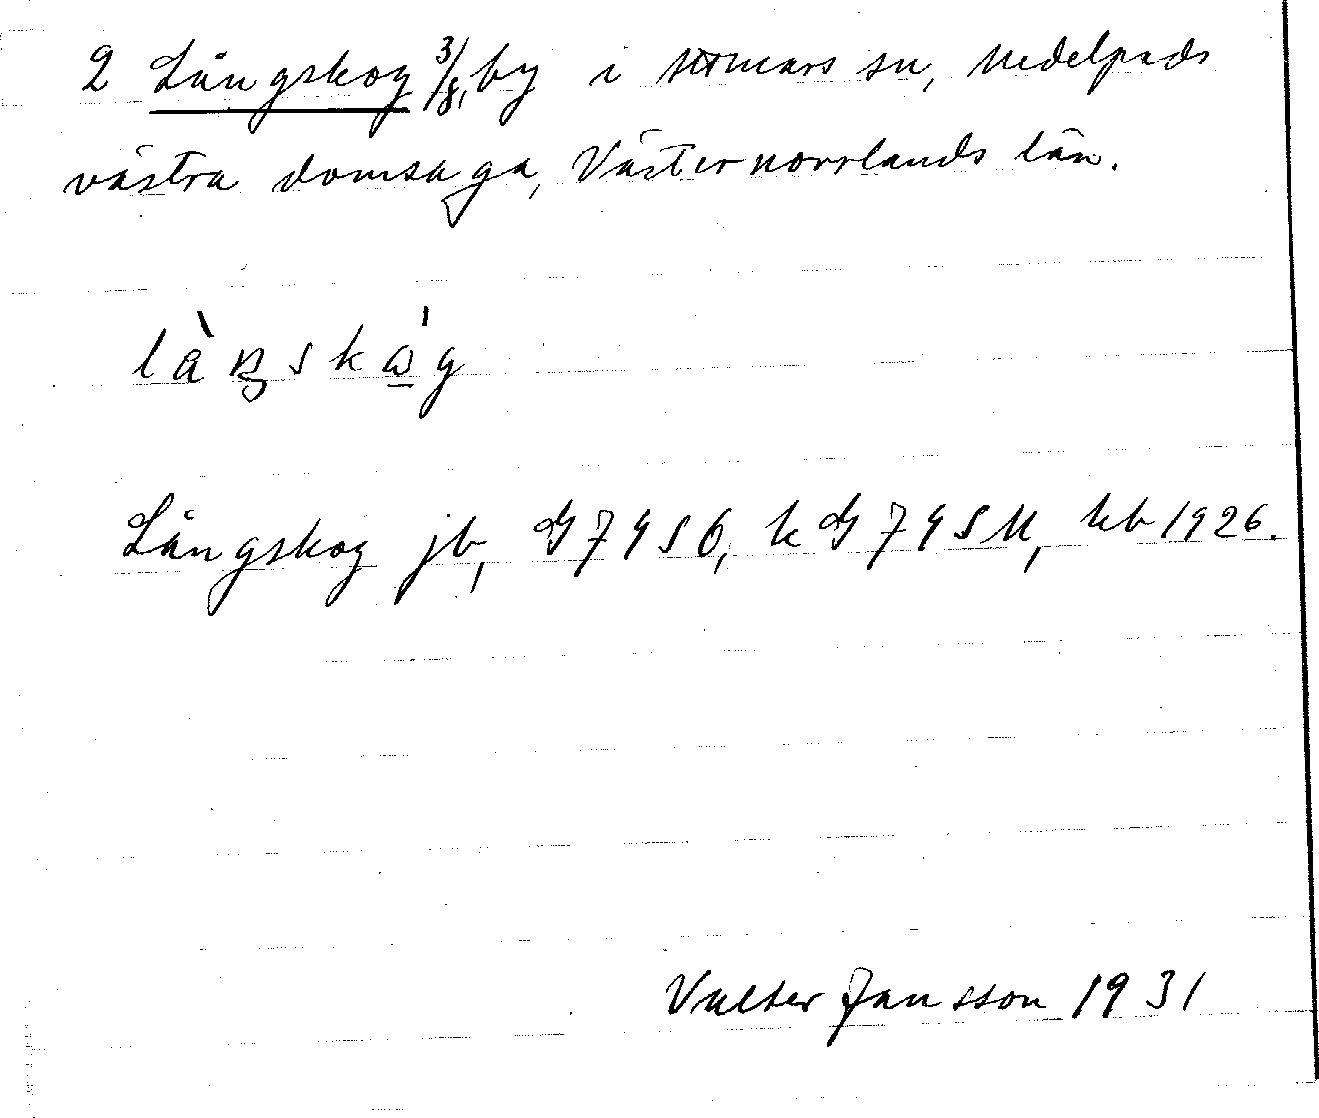 2 Långskog 3/8, by i Attmars sn, Medelpads
västra domsaga, Västernorrlands län.
Långskog jb, G 7456, k G 7454, kb 1926.
Valter Jansson 1931